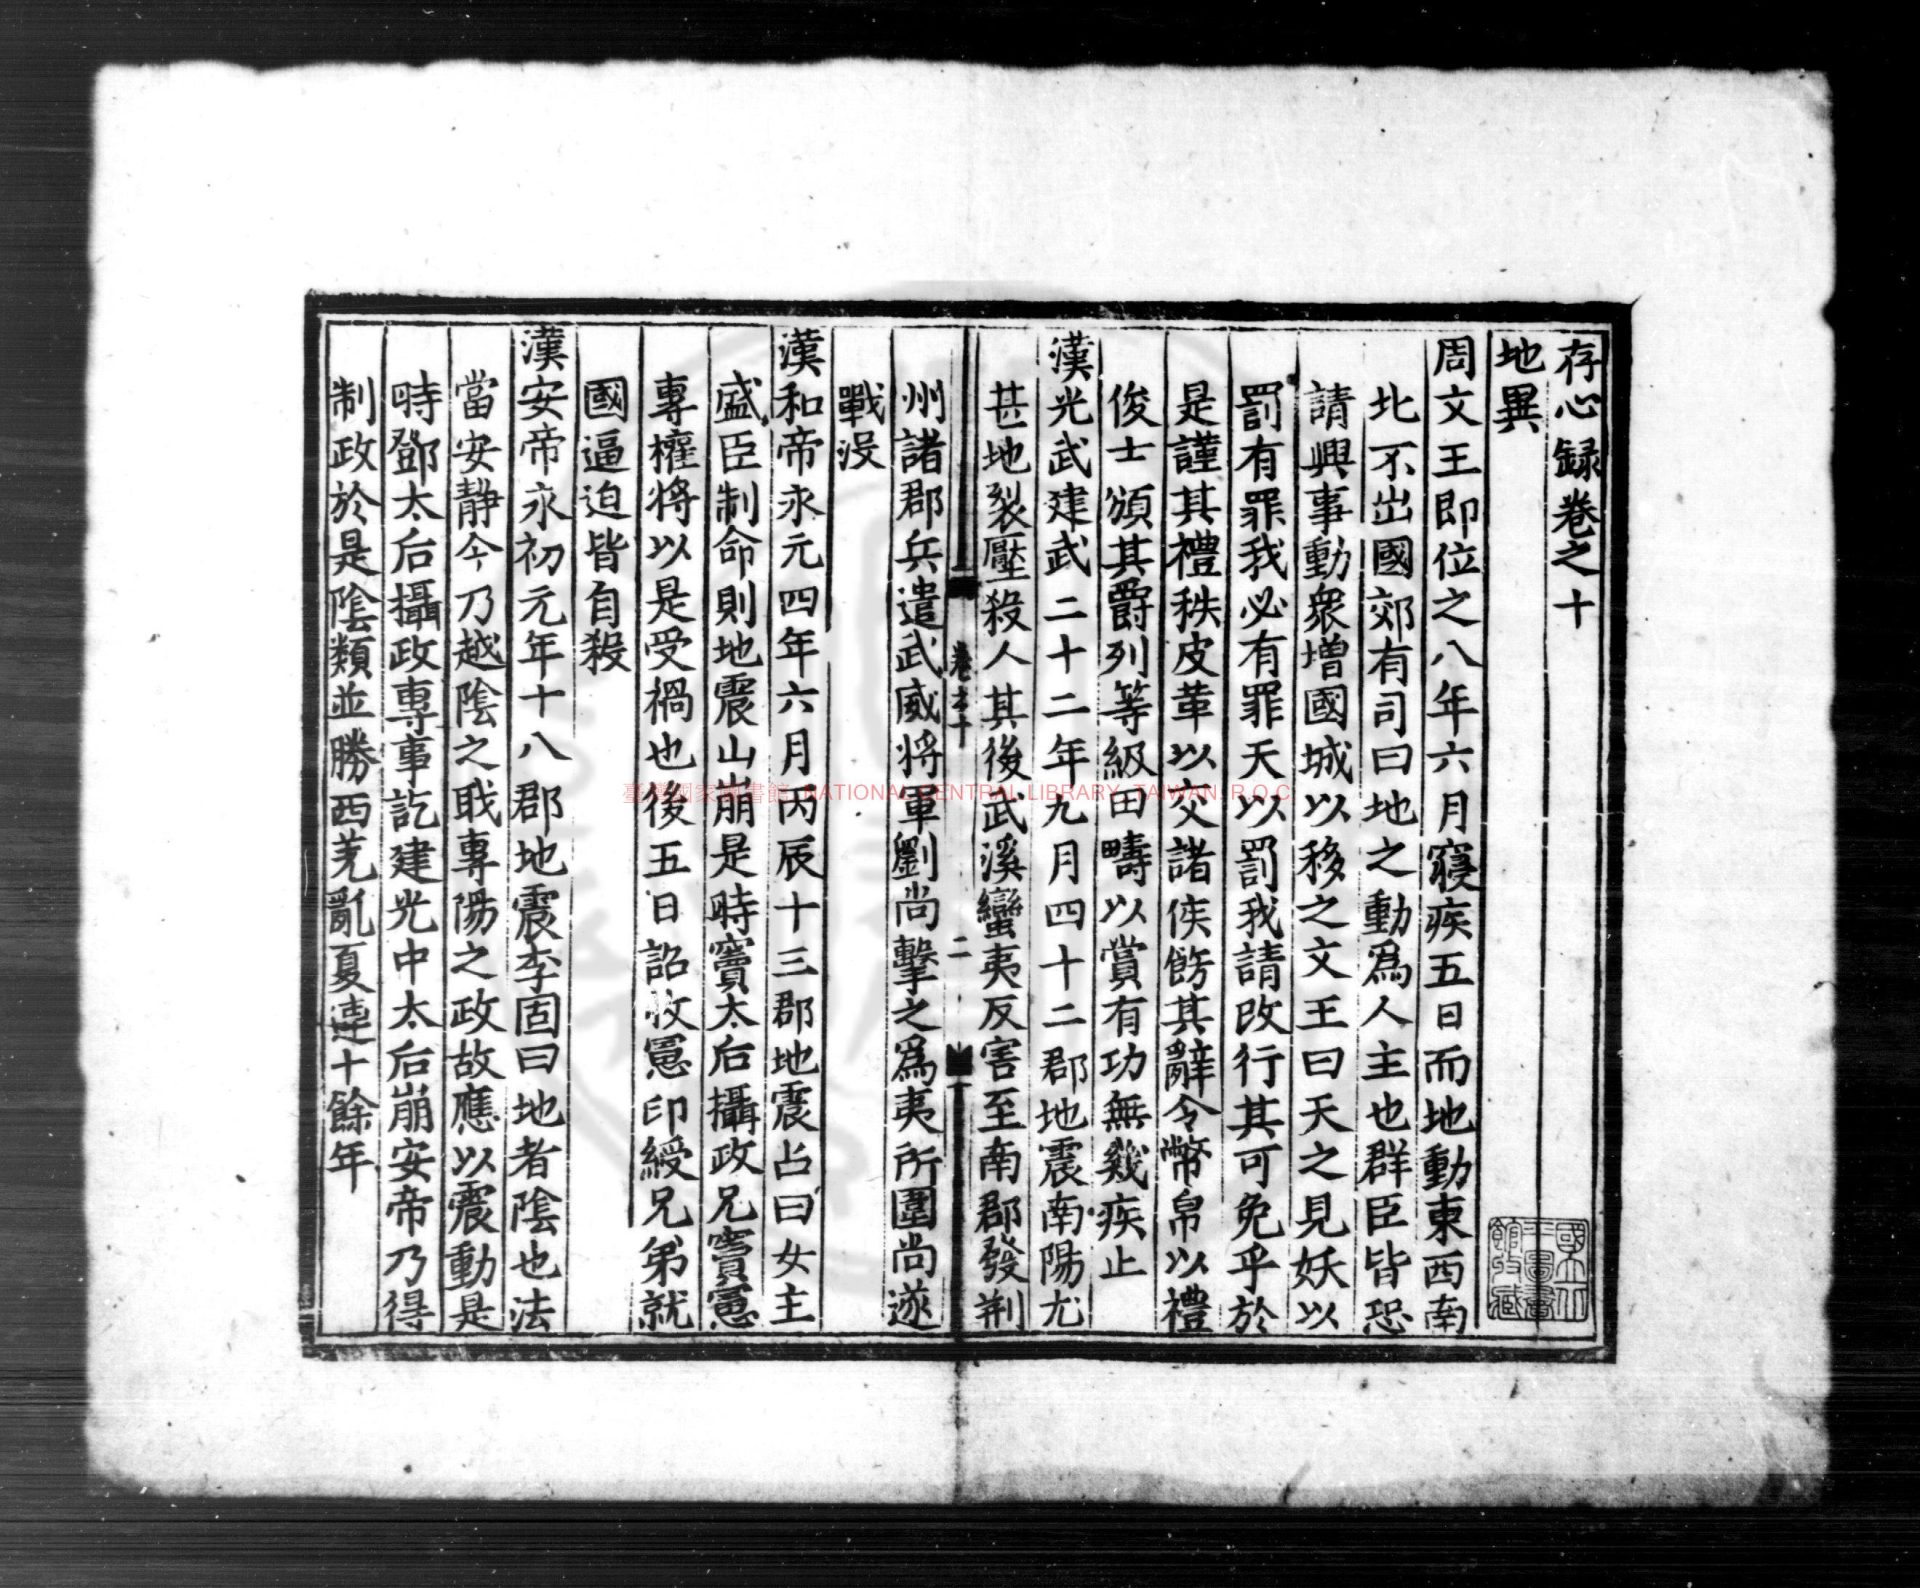 存心録卷之十
地異
周文王即位之八年六月寢疾五日而地動東西南
北不出國郊有司曰地之動爲人主也群臣皆恐
請興事動衆增國城以移之文王曰天之見妖以
罰有罪我必有罪天以罰我請改行其可免乎於
是謹其禮秩皮革以交諸侯飭其辭令幣帛以禮
俊士頒其爵列等級田疇以賞有功無幾疾止
漢光武建武二十二年九月四十二郡地震南陽尤
甚地裂壓殺人其後武溪蠻夷反害至南郡發荆
州諸郡兵遣武威將軍劉尚擊之爲夷所圍尚遂
戰没
漢和帝永元四年六月丙辰十三郡地震占曰女主
盛臣制命則地震山崩是時竇太后攝政兄竇憲
專權將以是受禍也後五日詔收憲印綬兄弟就
國逼迫皆自殺
漢安帝永初元年十八郡地震李固曰地者陰也法
當安靜今乃越陰之職專陽之政故應以震動是
時鄧太后攝政專事訖建光中太后崩安帝乃得
制政於是陰類並勝西羌亂夏連十餘年
卷之十
二
國立中央圖書館收藏
臺灣國家圖書館 NATIONAL CENTRAL LIBRARY, TAIWAN, R.O.C.